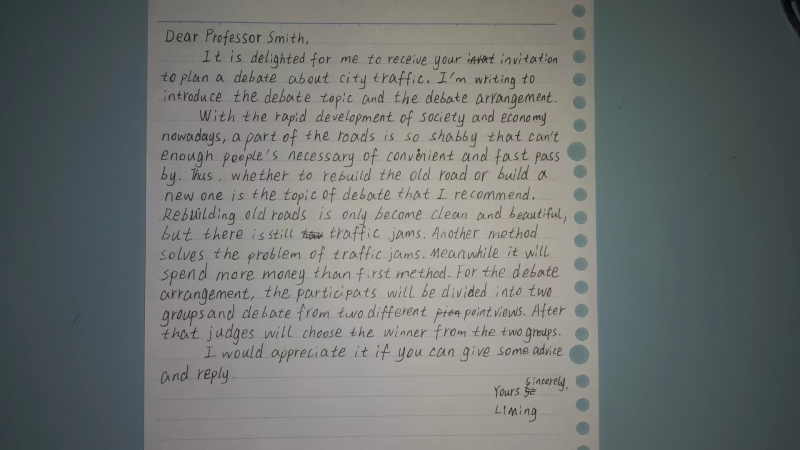 Dear Professor Smith,
It is delighted for me to receive your invitation
to plan a debate about city traffic. I'm writing to
introduce the debate topic and the debate arrangement.
With the rapid development of society and economy
nowadays, a part of the roads is so shabby that can't
enough people's necessary of convinient and fast pass
by. Thus, whether to rebuild the old road or build a
new one is the topic of debate that I recommend.
Rebuilding old roads is only become clean and beautiful,
but there is still traffic jams. Another method
solves the problem of traffic jams. Meanwhile it will
spend more money than first method. For the debate
arrangement, the participats will be divided into two
groups and debate from two different pointviews. After
that judges will choose the winner from the two groups.
I would appreciate it if you can give some advice
and reply.
Yours Sincerely,
LiMing